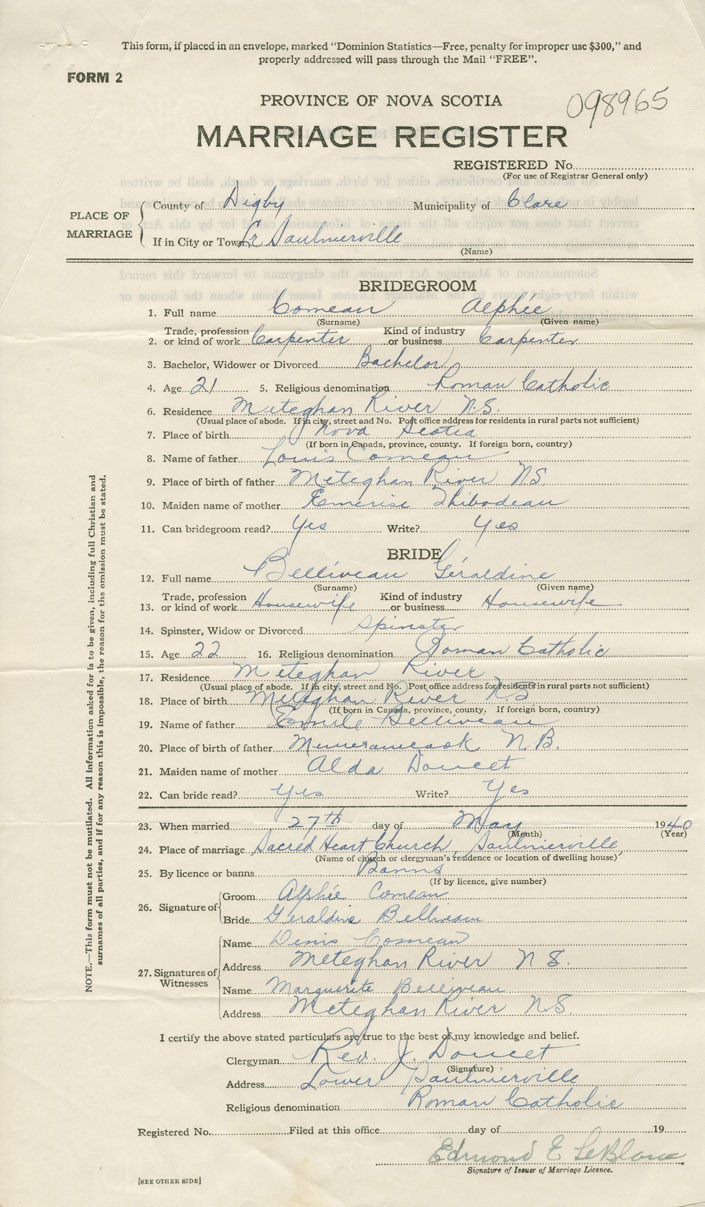 This form, if placed in an envelope, marked "Dominion Statistics—Free, penalty for improper use $300," and
properly addressed will pass through the Mail "FREE".
FORM 2
098965
PROVINCE OF NOVA SCOTIA
MARRIAGE REGISTER
REGISTERED No.
(For use of Registrar General only)
PLACE OF MARRIAGE
County of Digby Municipality of Clare
If in City or Town Lr Saulnierville
(Name)
BRIDEGROOM
1. Full name Comeau Alphée
(Surname) (Given name)
2. Trade, profession or kind of work Carpenter Kind of industry or business Carpenter
3. Bachelor, Widower or Divorced Bachelor
4. Age 21 5. Religious denomination Roman Catholic
6. Residence Meteghan River N.S.
(Usual place of abode. If in city, street and No. Post office address for residents in rural parts not sufficient)
7. Place of birth Nova Scotia
(If born in Canada, province, county. If foreign born, country)
8. Name of father Louis Comeau
9. Place of birth of father Meteghan River NS
10. Maiden name of mother Emerise Thibodeau
11. Can bridegroom read? Yes Write? Yes
BRIDE
12. Full name Belliveau Géraldine
(Surname) (Given name)
13. Trade, profession or kind of work Housewife Kind of industry or business Housewife
14. Spinster, Widow or Divorced Spinster
15. Age 22 16. Religious denomination Roman Catholic
17. Residence Meteghan River
(Usual place of abode. If in city, street and No. Post office address for residents in rural parts not sufficient)
18. Place of birth Meteghan River NS
(If born in Canada, province, county. If foreign born, country)
19. Name of father Emile Belliveau
20. Place of birth of father Memramcook N.B.
21. Maiden name of mother Alda Doucet
22. Can bride read? Yes Write? Yes
23. When married 27th day of May 1940
(Month) (Year)
24. Place of marriage Sacred Heart Church, Saulnierville
(Name of church or clergyman's residence or location of dwelling house)
25. By licence or banns Banns
(If by licence, give number)
26. Signature of
Groom Alphée Comeau
Bride Geraldine Belliveau
27. Signatures of Witnesses
Name Denis Comeau
Address Meteghan River N S.
Name Marguerite Belliveau
Address Meteghan River N.S
I certify the above stated particulars are true to the best of my knowledge and belief.
Clergyman Rev. J. Doucet
(Signature)
Address Lower Saulnierville
Religious denomination Roman Catholic
Registered No. Filed at this office day of 19
Edmond E LeBlanc
Signature of Issuer of Marriage Licence.
[SEE OTHER SIDE]
NOTE.—This form must not be mutilated. All information asked for is to be given, including full Christian and
surnames of all parties, and if for any reason this is impossible, the reason for the omission must be stated.